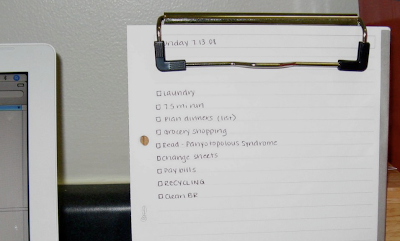 Friday 7.13.08
Laundry
7.5 mi run
Plan dinners (list)
Grocery shopping
Read - Panyotopolous Syndrome
Change sheets
Pay bills
RECYCLING
Clean BR